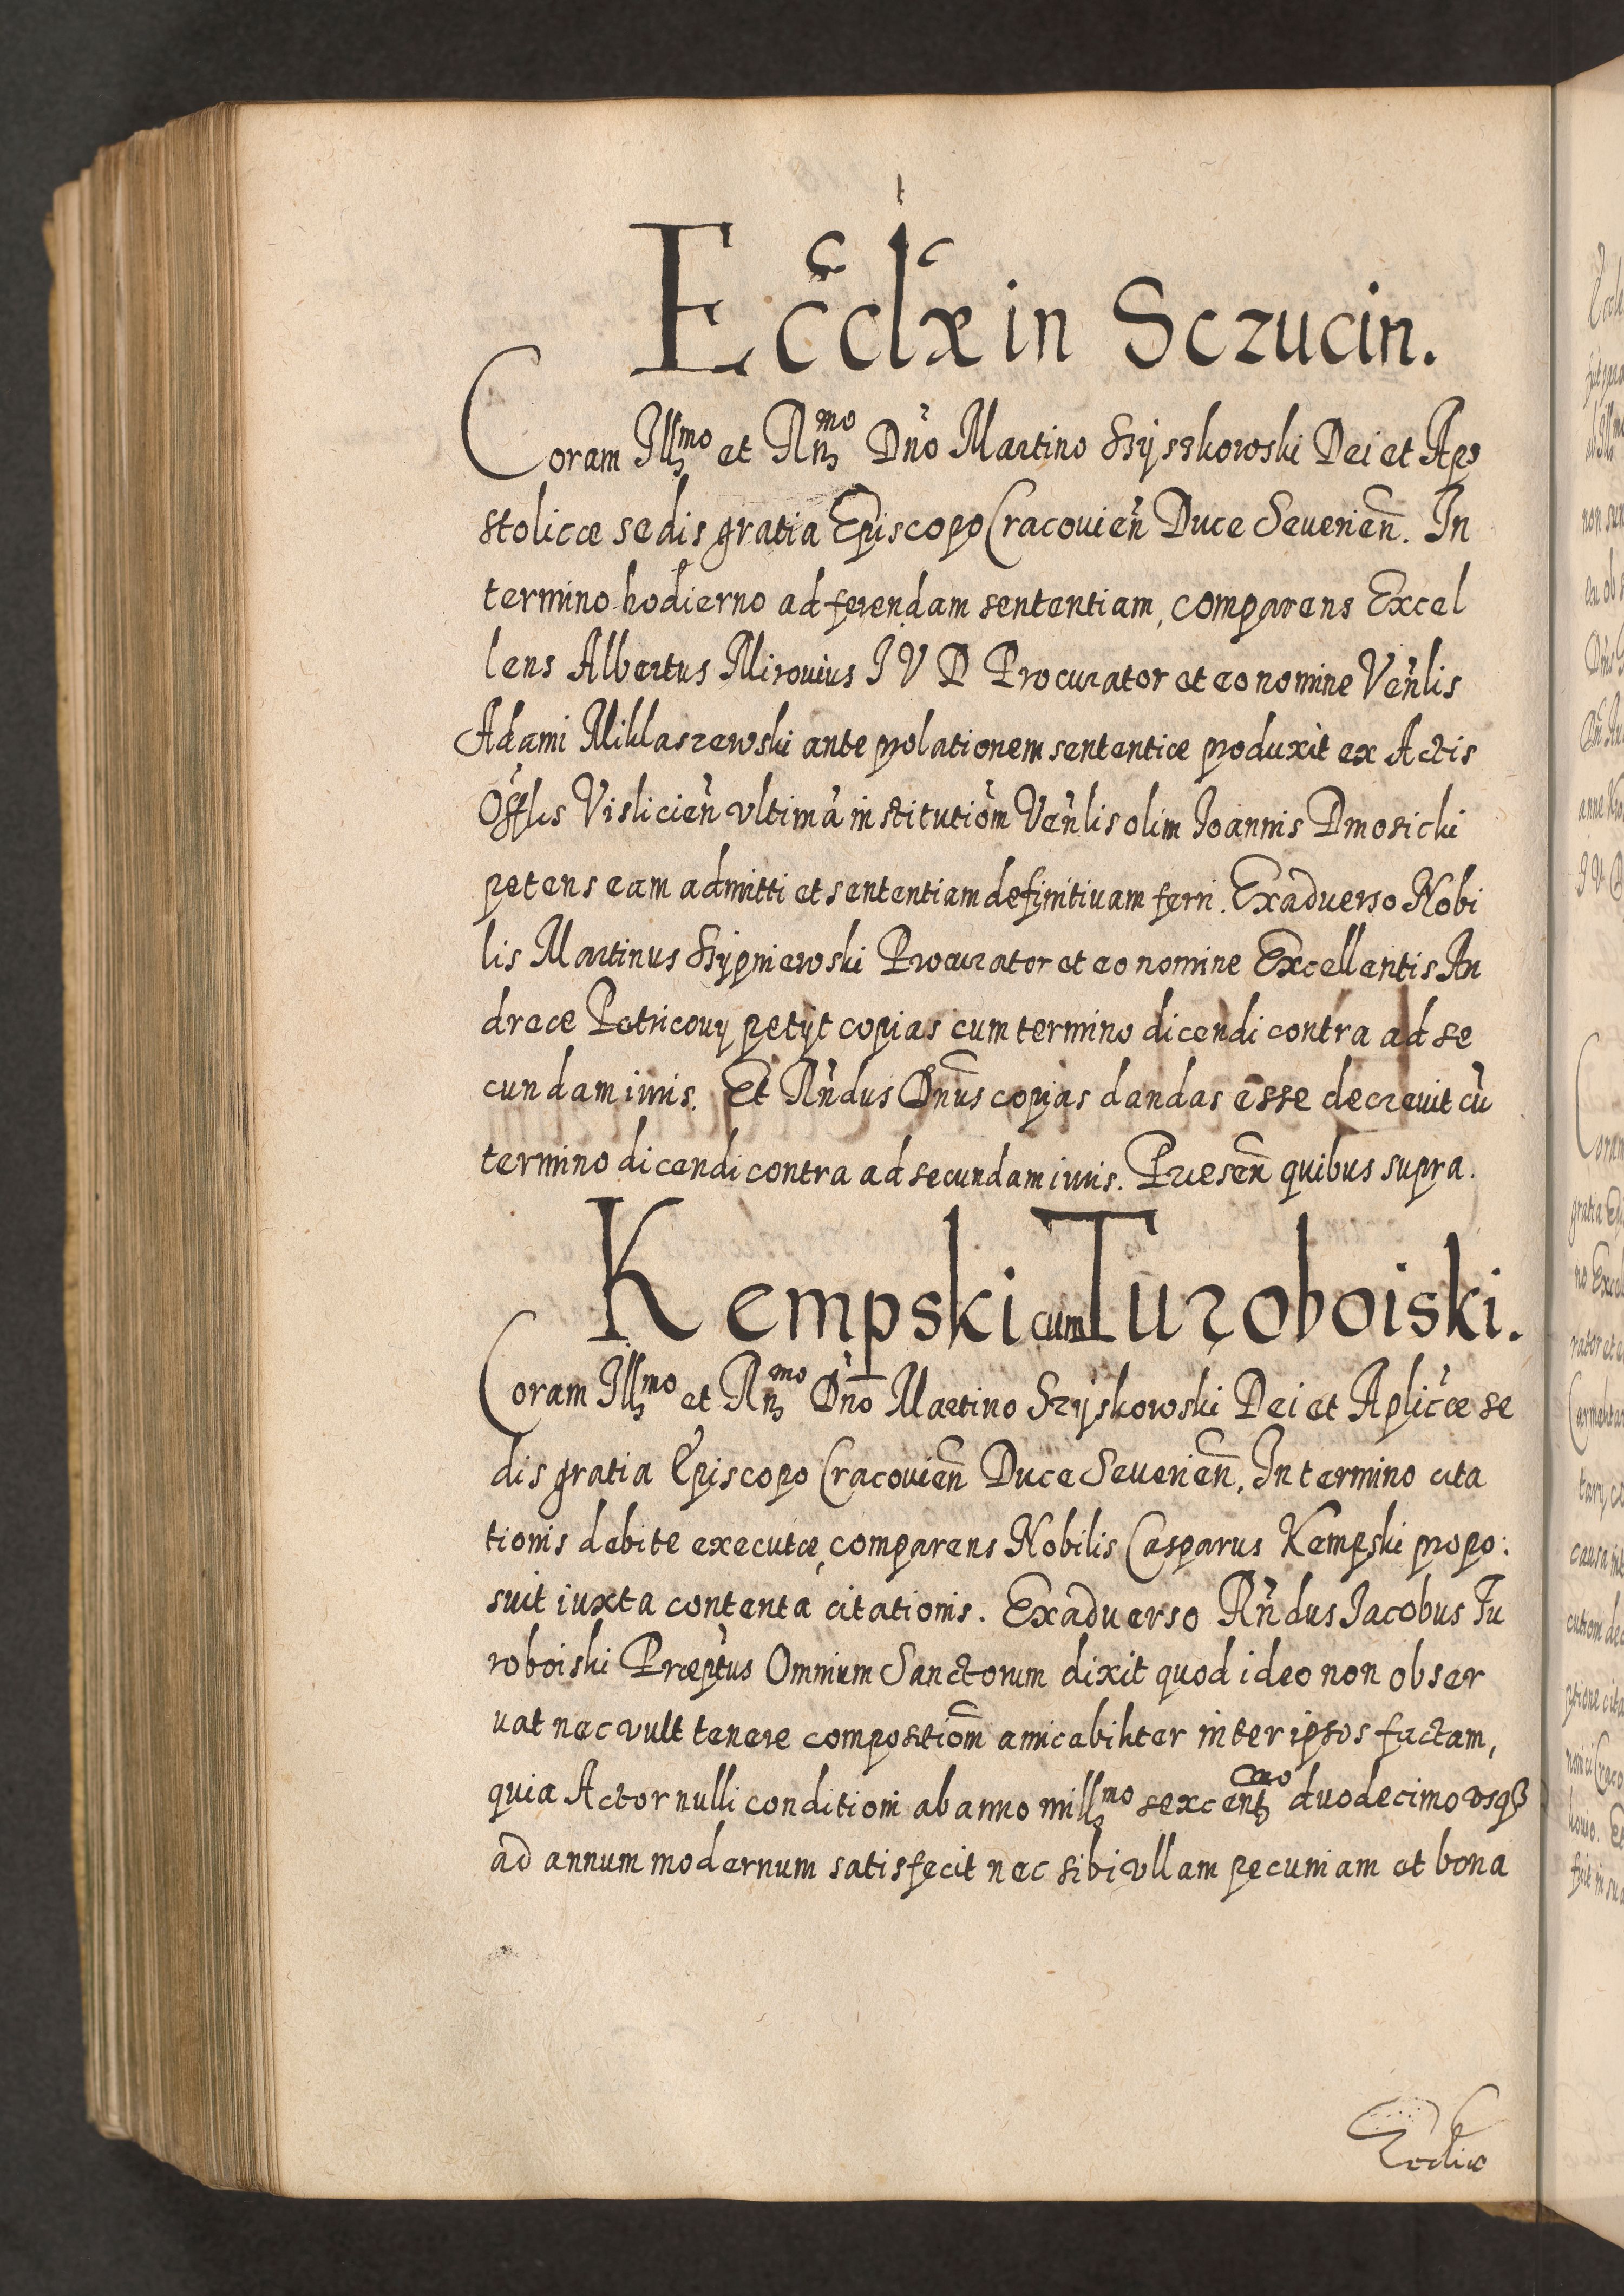 Eccłæ in Sczucin.
Coram Illmo et Rnmo Dno Martino Szyszkowski Dei et Apo
stolicæ sedis gratia Episcopo Cracovien Duce Severien. In
termino hodierno ad ferendam sententiam, comparens Excel
lens Albertus Mirovius I V D Procurator et eo nomine Venlis
Adami Miklaszewski ante prolationem sententiæ produxit ex Actis
Offlis Vislicien vltimā institutiōm Venlis olim Ioannis Dmosicki
petens eam admitti et sententiam definitiuam ferri. Exaduerso Nobi
lis Martinus Szypniewski Procurator et eo nomine Excellentis An
dreæ Petricouy petyt copias cum termino dicendi contra ad se
cundam iuris. Et Rndus Dnus copias dandas esse decreuit cū
termino dicendi contra ad secundam iuris. Præsen quibus supra.
Kempski cum Turoboiski.
Coram Illmo et Rnmo Dno Martino Szyskowski Dei et Aplicæ se
dis gratia Episcopo Cracouien Duce Seuerien. In termino cita
tionis debite executæ, comparens Nobilis Casparus Kempski propo:
suit iuxta contenta citationis. Exaduerso Rndus Iacobus Tu
roboiski Præptus Omnium Sanctorum dixit quod ideo non obser
uat nec vult tenere compositiom amicabiliter inter ipsos factam,
quia Actor nulli conditioni ab anno millmo sexcent duodecimo vsqȝ
ad annum modernum satisfecit nec sibi vllam pecuniam et bona